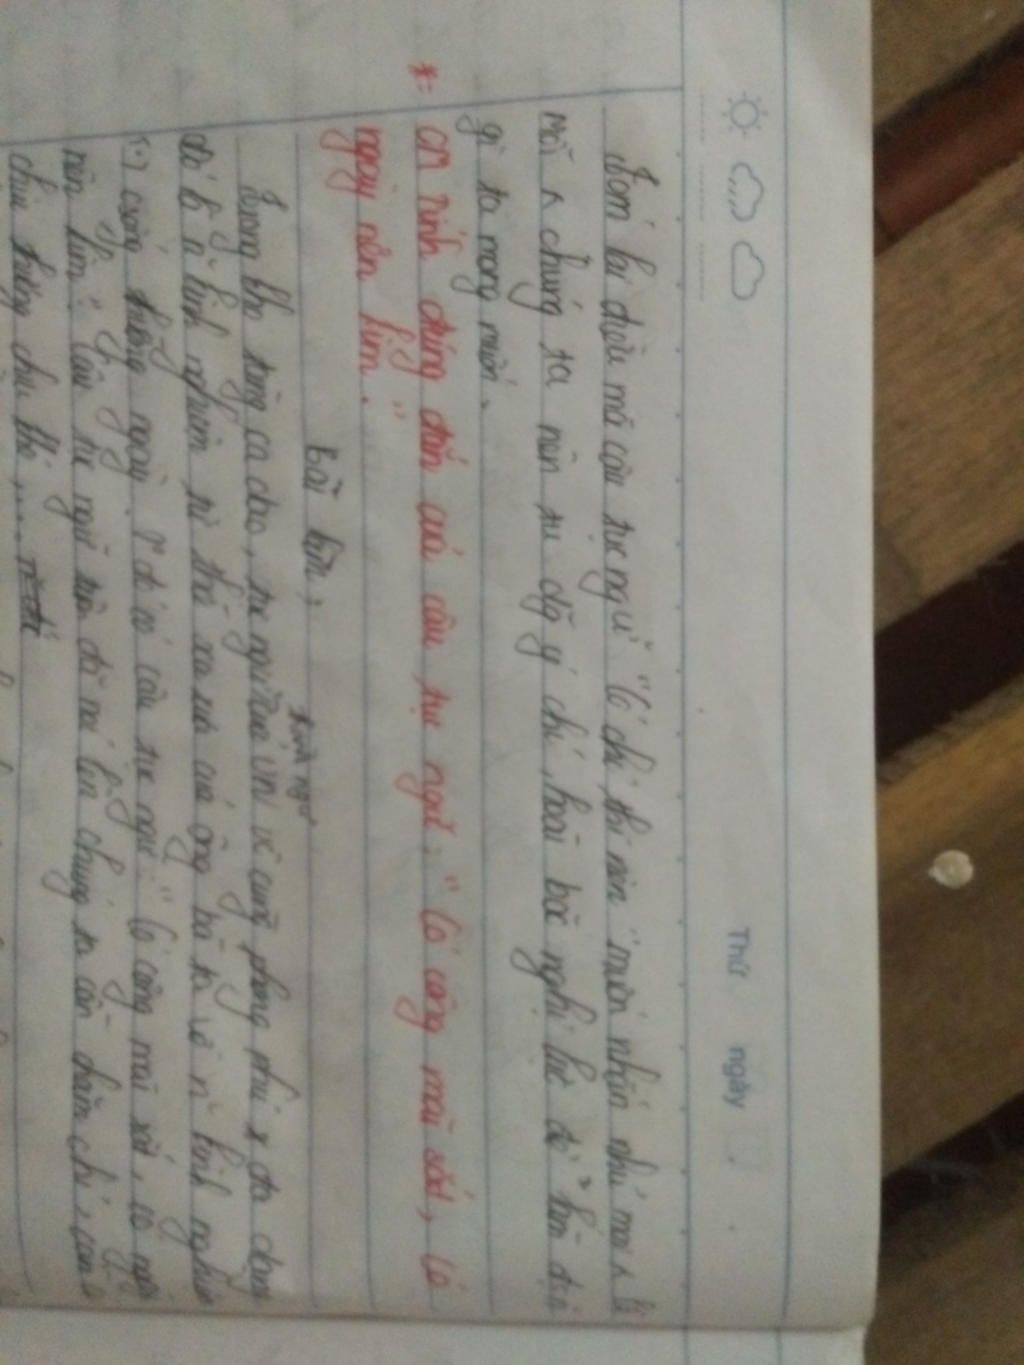 Thứ ngày
Tóm lại dưới mà câu tục ngữ "Có chí thì nên" muốn nhắn nhủ mọi
Mỗi chúng ta nên tu dưỡng ý chí, hoài bão nghị lực để
gì ta mong muốn.
*= CM tính đúng đắn của câu tục ngữ: "Có công mài sắt, có
ngày nên kim".
Bài làm:
Trong kho tàng ca dao, tục ngữ của VN vô cùng phong phú x đa dạng
đó là n~ kinh nghiệm từ thở xa xưa của ông bà ta về n~ kinh nghiệm
cuộc sống hằng ngày. Trg đó có câu tục ngữ: "Có công mài sắt, có ngày
nên kim". Câu tục ngữ trên đã nói lên chúng ta cần chăm chỉ,
chịu thương chịu khó